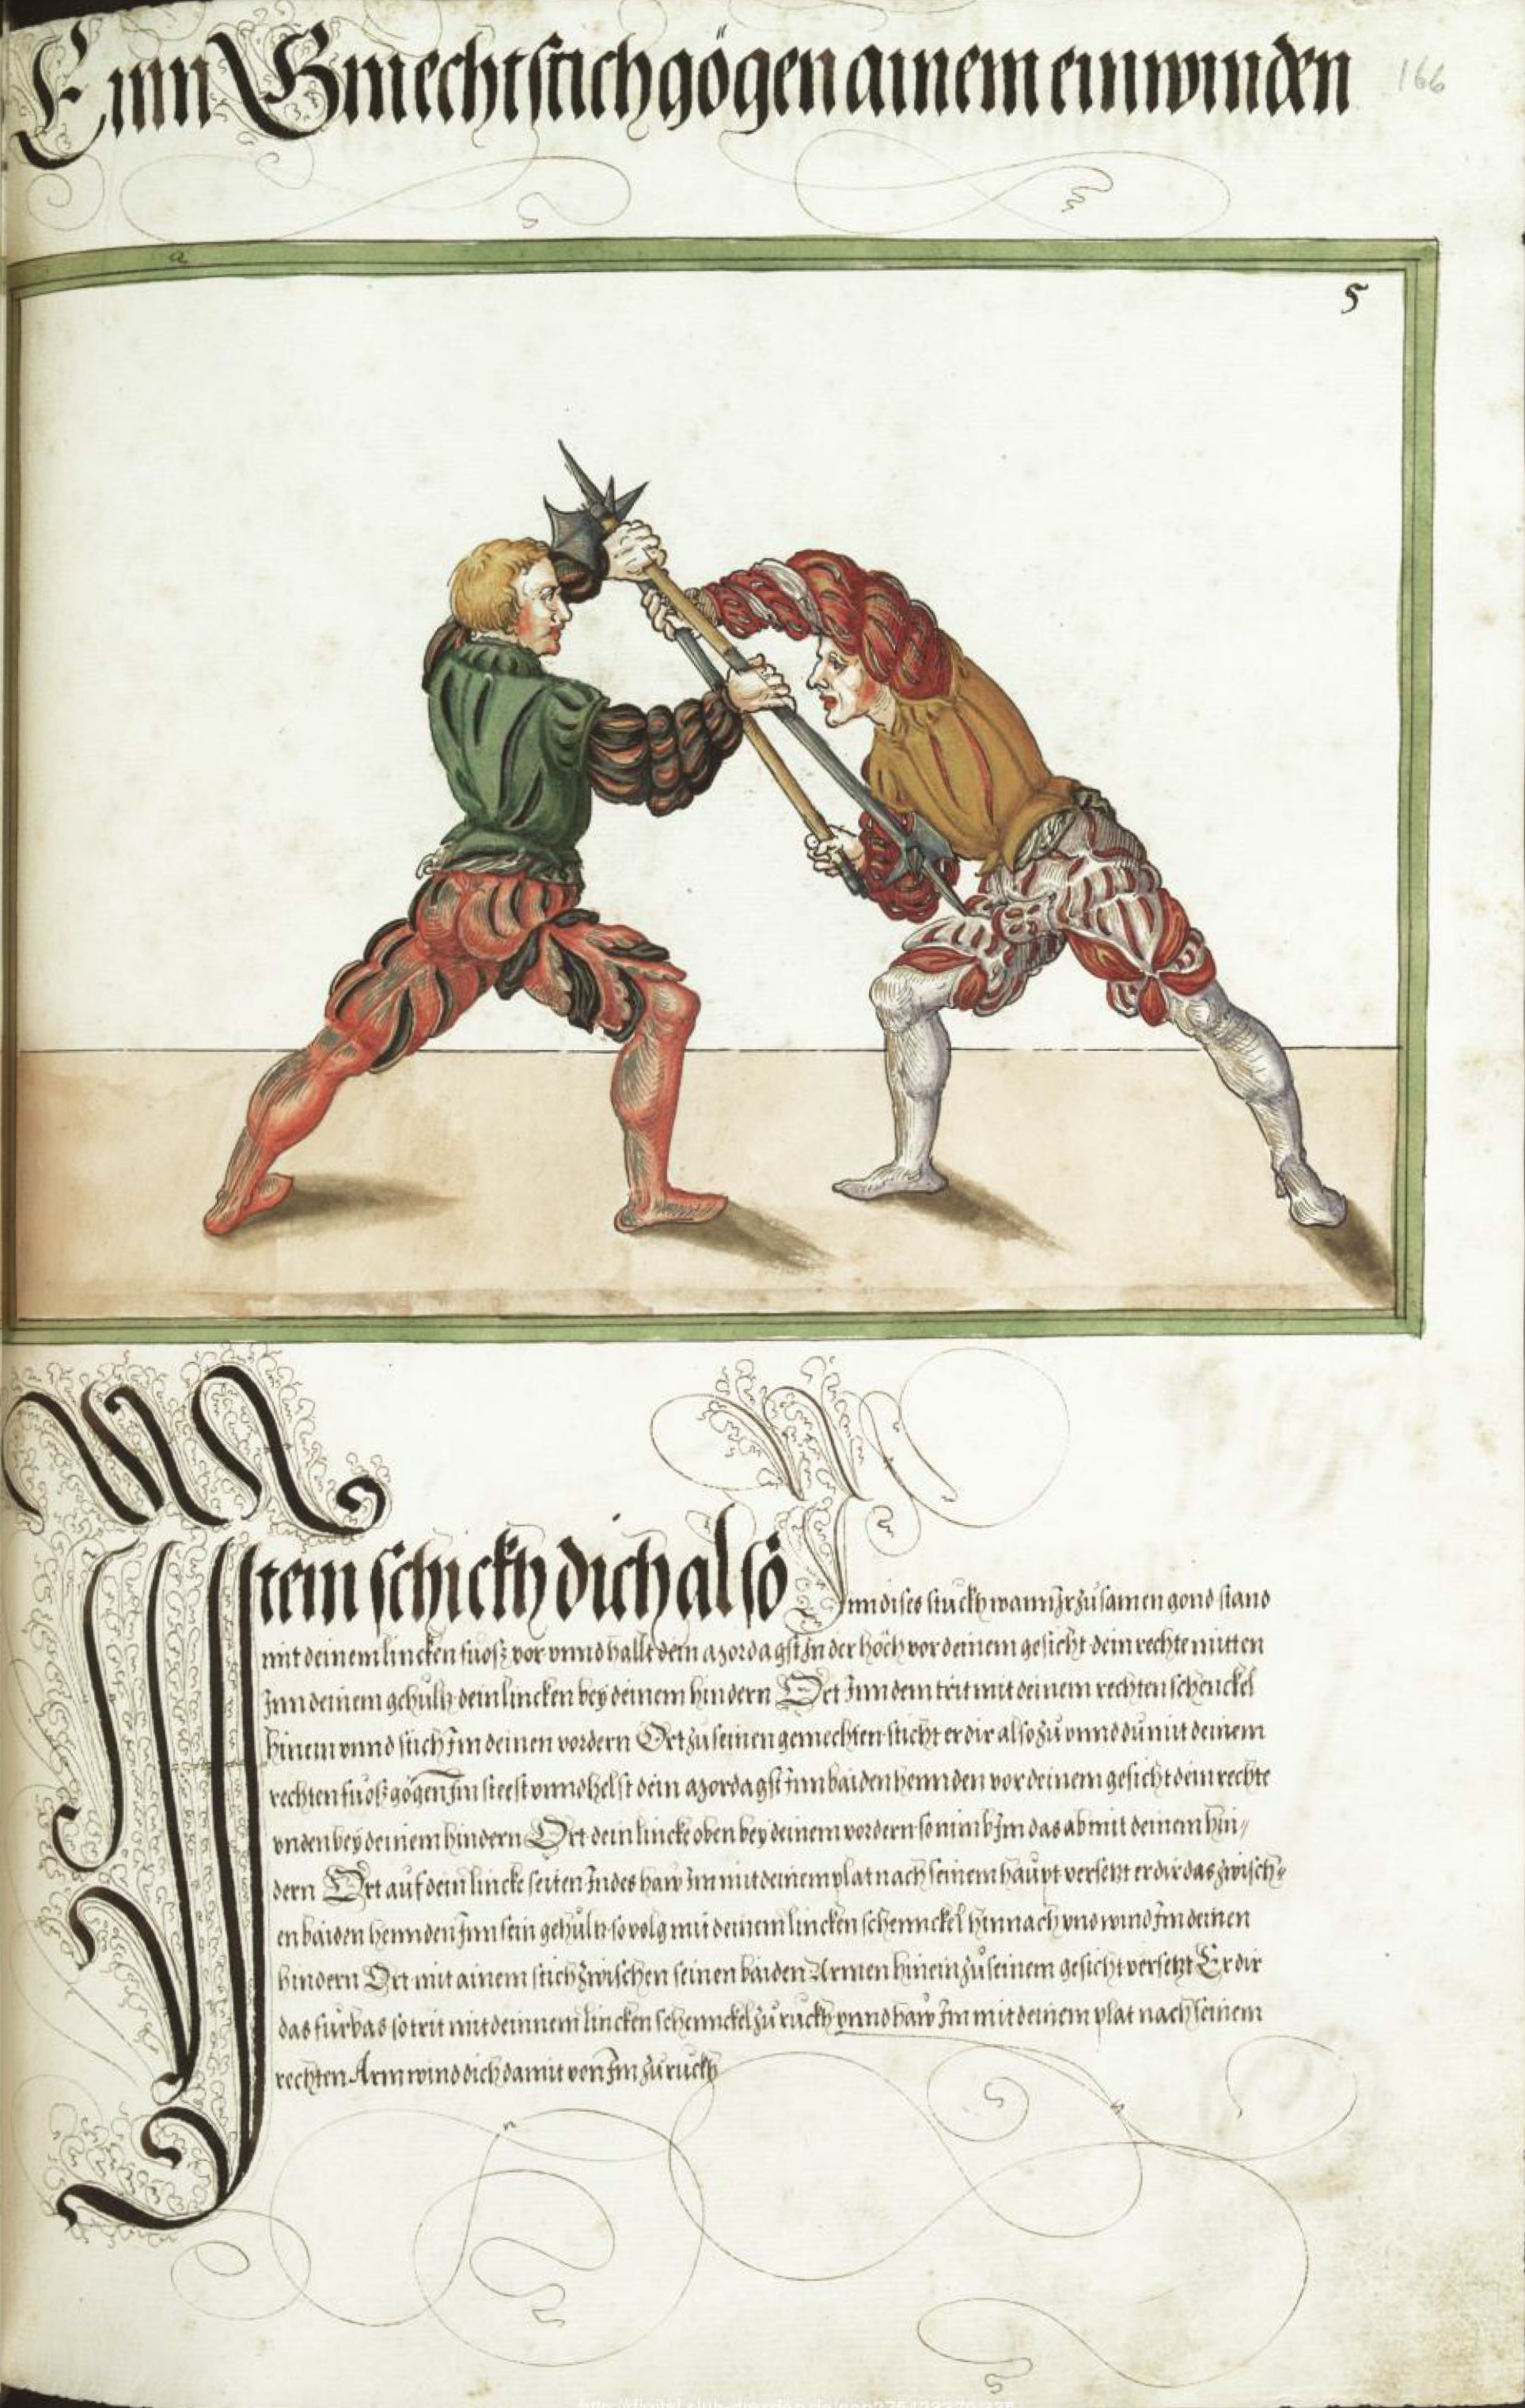 Einn Gmechtstich gögen ainem einwinden
166
a
5
Item schickh dich also Inn dises stuckh wann Ir zůsamen gond stand
mit deinem lincken fuosz vor vnnd hallt dein mordagst In der höch vor deinem gesicht dein rechte mitten
Inn deinem gehultz dein lincken bey deinem hindern Ort Inn dem trit mit deinem rechten schenckel
hinein vnnd stich Im deinen vordern Ort zu seinen gemechten sticht er dir also zů vnnd du mit deinem
rechten fuosz gögen Im steest vnnd helst dein mordagst Inn baiden hennden vor deinem gesicht dein rechte
vnden bey deinem hindern Ort dein lincke oben bey deinem vordern so nimb Im das ab mit deinem hin//
dern Ort auf dein lincke seiten Indes haw Im mit deinem plat nach seinem haupt versetzt er dir das zwisch=
en baiden hennden Inn sein gehultz so volg mit deinem lincken schennckel hinnach vnd wind Im deinen
hindern Ort mit ainem stich zwischen seinen baiden Armen hinein zů seinem gesicht versetzt Er dir
das fürbas so trit mit deinnem lincken schennckel zů ruckh vnnd haw Im mit deinem plat nach seinem
rechten Arm wind dich damit von Im zů ruckh